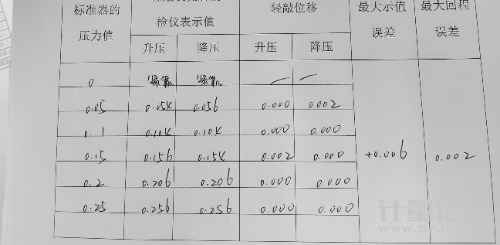 标准器的 轻敲位移 最大示值 最大回程
压力值 检仪表示值 误差 误差
升压 降压 升压 降压
0
0.05 0.054 0.056 0.000 0.002
0.1 0.104 0.104 0.000 0.000
0.15 0.156 0.154 0.002 0.000 +0.006 0.002
0.2 0.206 0.206 0.000 0.000
0.25 0.256 0.256 0.000 0.000